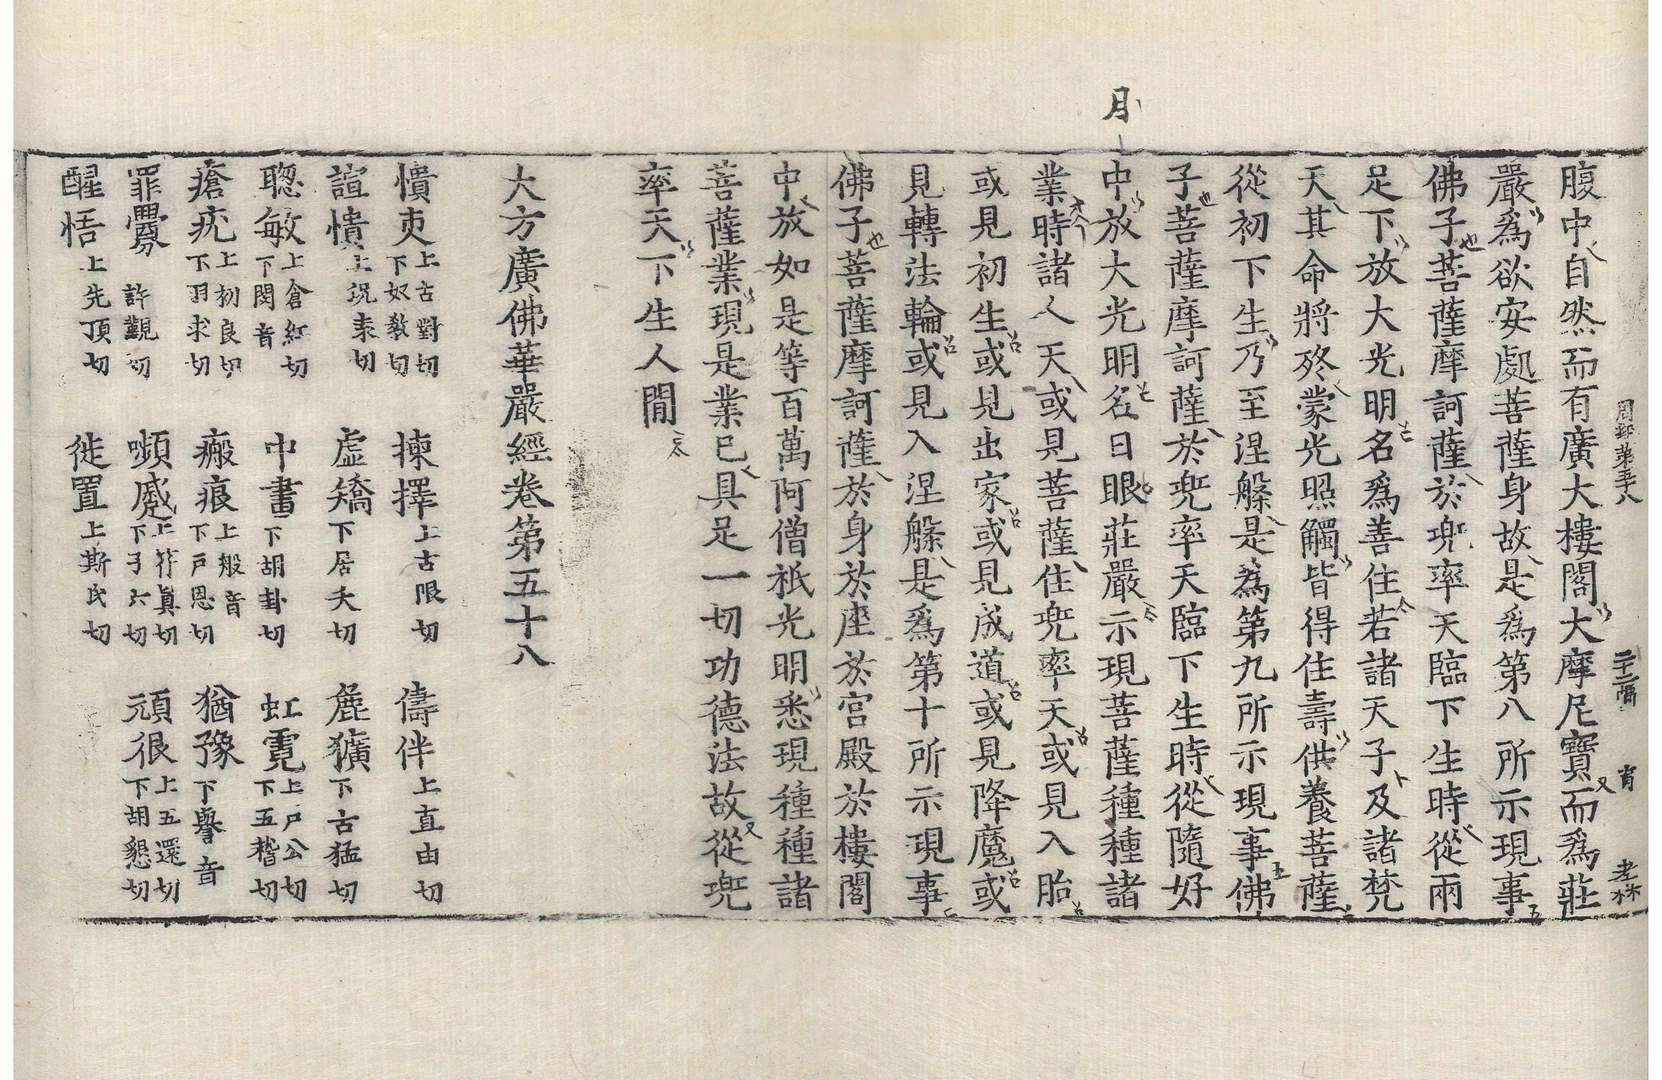 周經第五十八 二十二幅 育 老林
腹中自然而有廣大樓閣大摩尼寶而爲莊
嚴爲欲安處菩薩身故是爲第八所示現事
佛子菩薩摩訶薩於兜率天臨下生時從兩
足下放大光明名爲善住若諸天子及諸梵
天其命將終蒙光照觸皆得住壽供養菩薩
從初下生乃至涅槃是爲第九所示現事佛
子菩薩摩訶薩於兜率天臨下生時從隨好
中放大光明名曰眼莊嚴示現菩薩種種諸
業時諸人天或見菩薩住兜率天或見入胎
或見初生或見出家或見成道或見降魔或
見轉法輪或見入涅槃是爲第十所示現事
佛子菩薩摩訶薩於身於座於宮殿於樓閣
中放如是等百萬阿僧祇光明悉現種種諸
菩薩業現是業已具足一切功德法故從兜
率天下生人閒
大方廣佛華嚴經卷第五十八
憒吏上古對切下奴教切 揀擇上古限切 儔伴上直由切
諠憒上況袁切 虛矯下居夭切 麁獷下古猛切
聰敏上倉紅切下閔音 中畫下胡卦切 虹霓上戶公切下五稽切
瘡疣上初良切下羽求切 瘢痕上般音下戶恩切 猶豫下譽音
罪釁許覲切 嚬蹙上符眞切下子六切 頑很上五還切下胡懇切
醒悟上先頂切 徙置上斯氏切